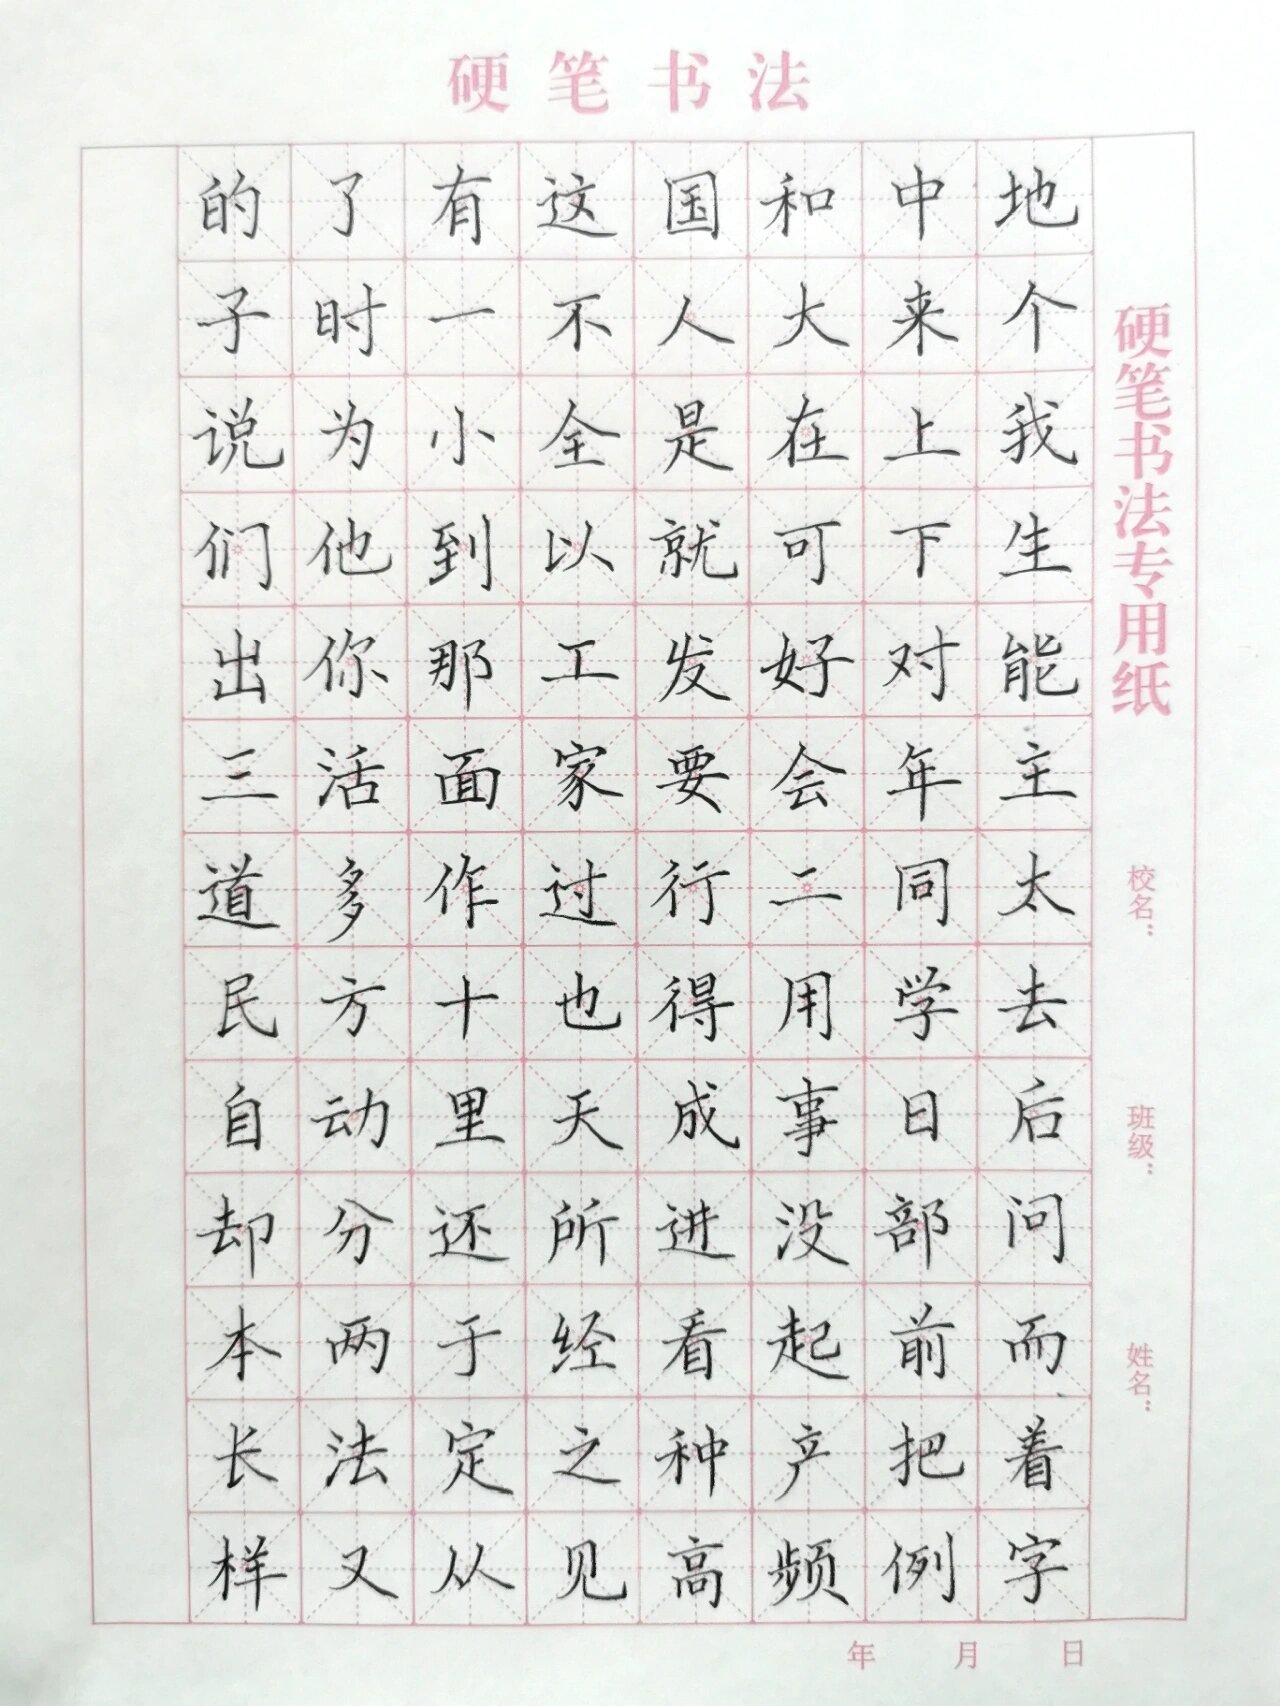 硬笔书法
的了有这国和中地
子时一不人大来个
说为小全是在上我
们他到以就可下生
出你那工发好对能
三活面家要会年主
道多作过行二同太
民方十也得用学去
自动里天成事日后
却分还所进没部问
本两于经看起前而
长法定之种产把着
样又从见高频例字
硬笔书法专用纸
校名：
班级：
姓名：
年 月 日